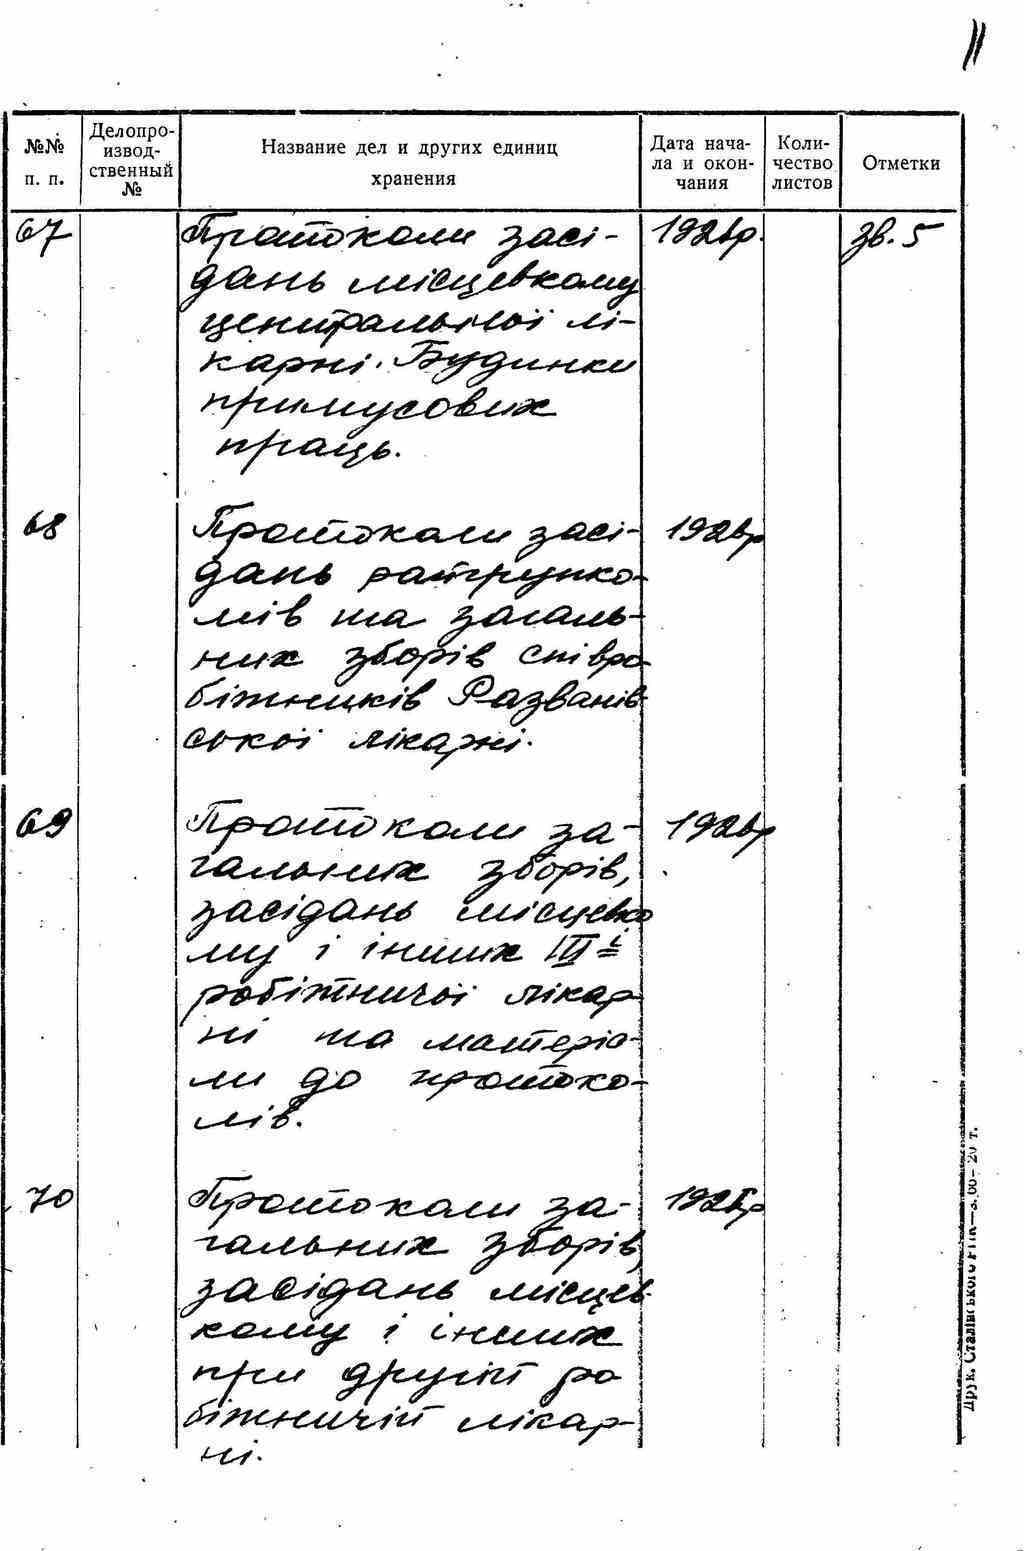 11
№№ п. п.
Делопроизводственный №
Название дел и других единиц хранения
Дата начала и окончания
Количество листов
Отметки
67
Протоколи засі-
дань місцевкому
центральної лі-
карні. Будинки
примусових
праць.
192 р.
зв. 5
68
Протоколи засі-
дань
мів та загаль-
них зборів співро-
бітників
ської лікарні.
192 р
69
Протоколи за-
гальних зборів,
засідань місцевко
му і інших IIIї
робітничої лікар
ні та матеріа-
ли до протоко-
лів.
192 р
70
Протоколи за-
гальних зборів,
засідань місцев-
кому і інших
при другій ро
бітничій лікар-
ні.
192 р
Друк. Сталінського